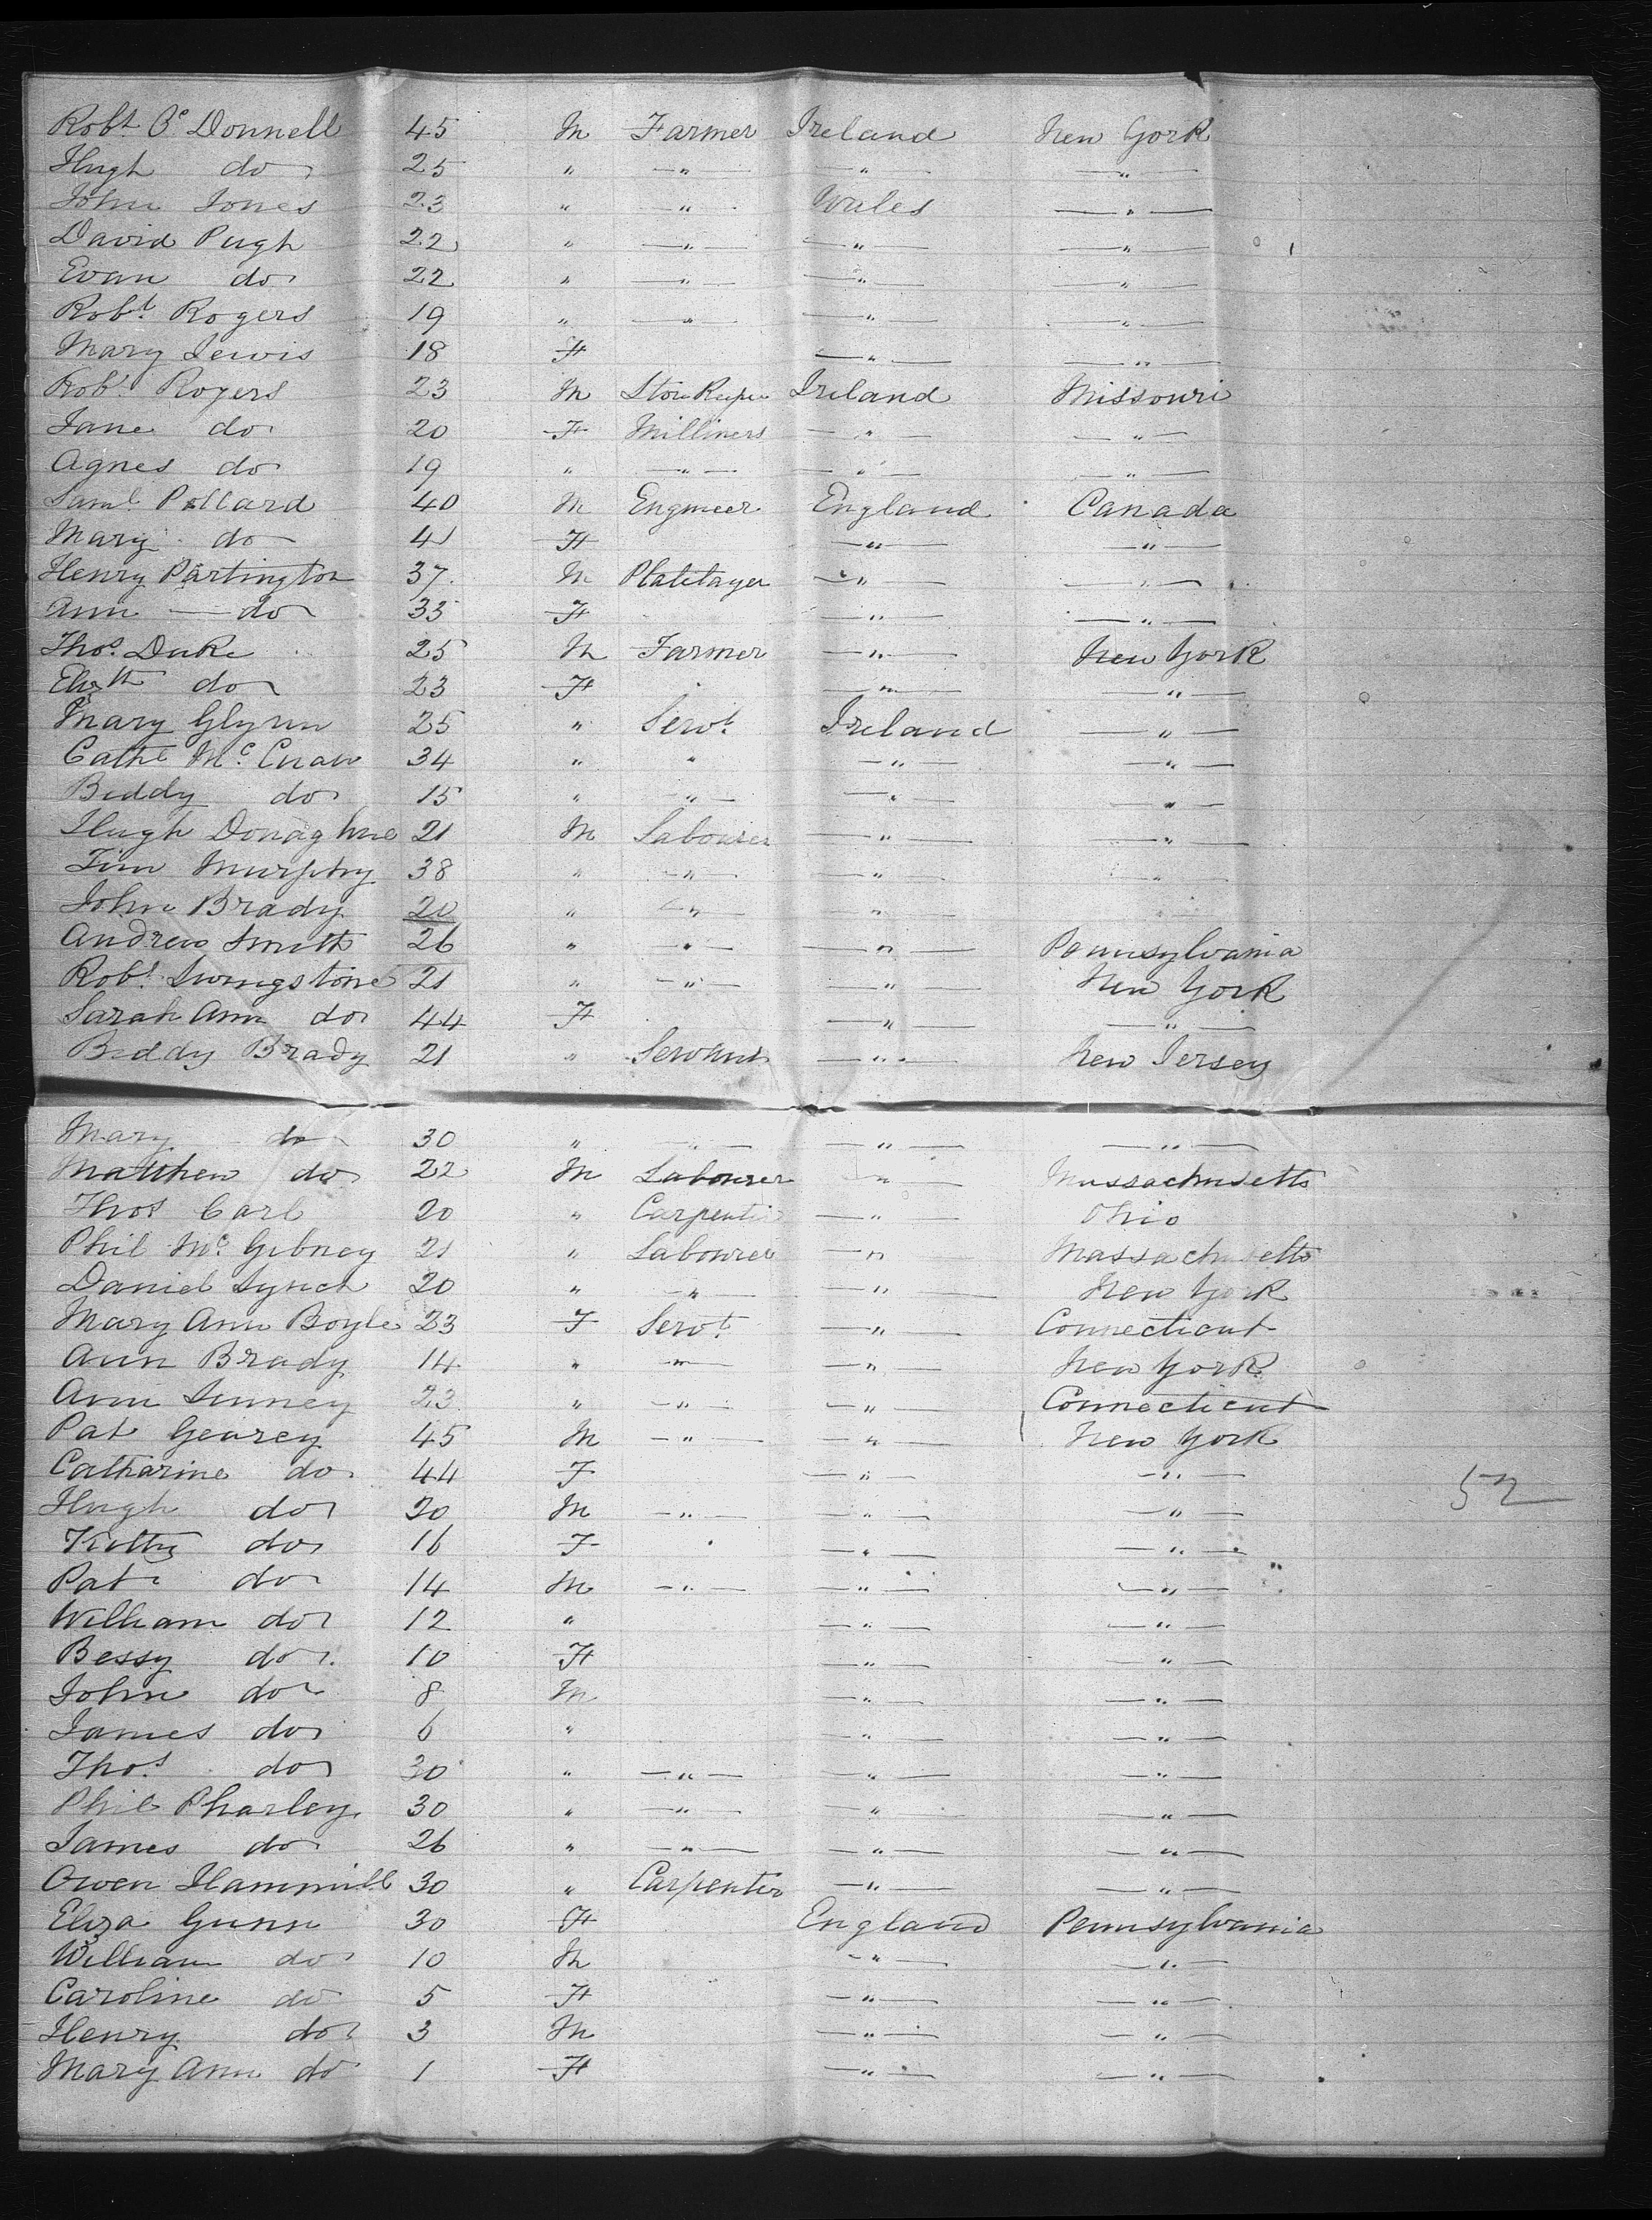 Robt Oc Donnell 45 M Farmer Ireland New York
Hugh do 25 " — " — — " — — " —
John Jones 23 " " Wales — " —
David Pugh 22 " — " — — " — — " —
Evan do 22 " — " — — " — — " —
Robt. Rogers 19 " — " — — " — — " —
Mary Lewis 18 F — " — — " —
Robt. Rogers 23 M Store Keeper Ireland Missouri
Jane do 20 F Milliners — " — — " —
Agnes do 19 " — " — — " — — " —
Saml. Pollard 40 M Engineer England Canada
Mary do 41 F — " — — " —
Henry Partington 37. M Platelayer — " — — " —
Ann — do 33 F — " — — " —
Thos. Duke 25 M Farmer — " — New York
Elizth do 23 F — " — — " —
Mary Glynn 25 " Servt. Ireland — " —
Cathe Mc. 34 " " — " — — " —
Biddy do 15 " — " — — " — " —
Hugh Donaghue 21 M Labourer — " — — " —
Tim Murphy 38 " — " — — " — "
John Brady 20 " — " — "
Andrew Smith 26 " — " — — " — Pennsylvania
Robt. Livingstone 21 " — " — — " — New York
Sarah Ann do 44 F — " — — " —
Biddy Brady 21 " Servant — " — New Jersey
Mary do 30 " — " — — " — — " —
Matthew do 22 M Labourer — " — Massachusetts
Thos Carl 20 " Carpenter — " — Ohio
Phil Mc. Gibney 21 " Labourer — " — Massachusetts
Daniel Lynch 20 " — " — — " — New York
Mary Ann Boyle 23 F Servt. — " — Connecticut
Ann Brady 14 " — " — — " — New York
Ann 23 " — " — — " — Connecticut
Pat Gearey 45 M — " — — " — New York
Catharine do 44 F — " — — " —
Hugh do 20 M — " — — " — — " — 52
Kitty do 16 F — " — — " —
Pat do 14 M — " — — " — — " —
William do 12 " — " — — " —
Bessy do 10 F — " — — " —
John do 8 M — " — — " —
James do 6 " — " — — " —
Thos. do 30 " — " — — " — — " —
Phil Pharley 30 " — " — — " — — " —
James do 26 " — " — — " — — " —
Owen Hammill 30 " Carpenter — " — — " —
Eliza Gunn 30 F England Pennsylvania
William do 10 M — " — — " —
Caroline do 5 F — " — — " —
Henry do 3 M — " — — " —
Mary Ann do 1 F — " — — " —